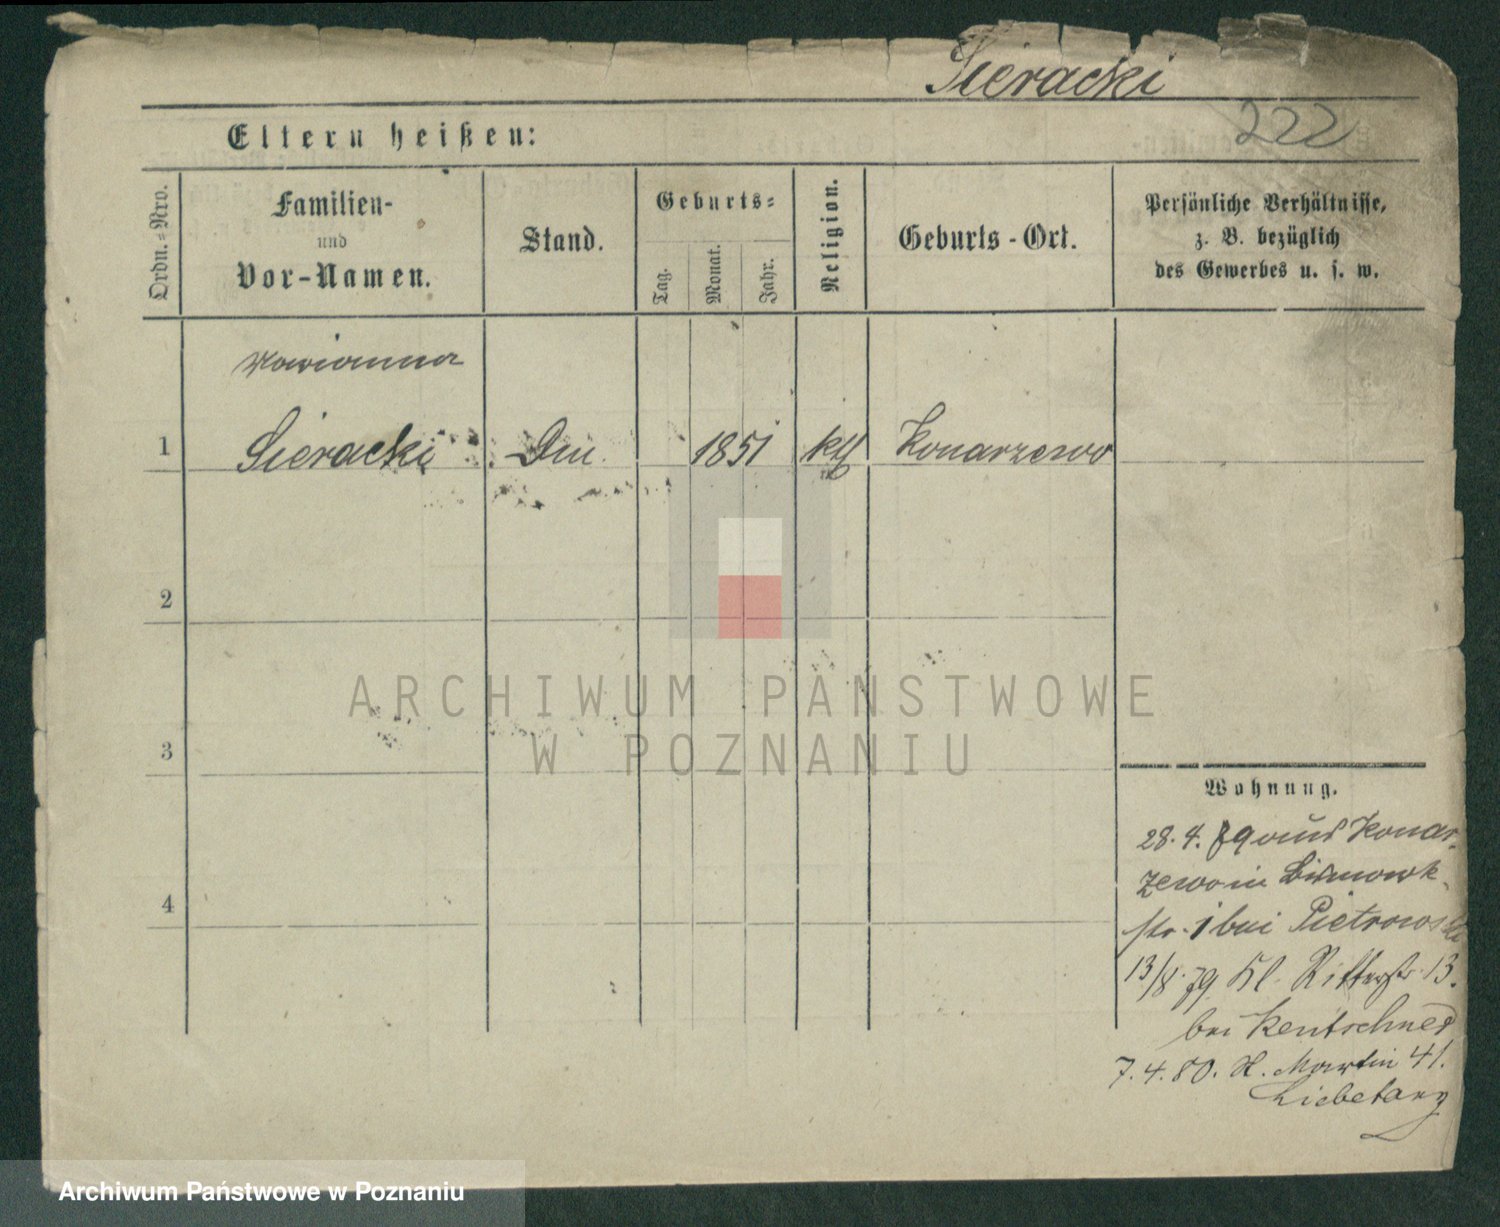 Sieracki
222
Eltern heißen:
Ordn.-Nro.
Familien-
und
Vor-Namen.
Stand.
Geburts-
Tag.
Monat.
Jahr.
Religion.
Geburts-Ort.
Persönliche Verhältnisse,
z. B. bezüglich
des Gewerbes u. s. w.
Marianna
1 Sieracki Dm 1851 kth Konarzewo
2
3
4
ARCHIWUM PAŃSTWOWE
W POZNANIU
Wohnung.
28. 4. 79 aus Konar-
zewo in Bismark-
str. 1 bei Pietrowski
13/8. 79 Kl. Ritterstr. 13.
bei Rentschner
7. 4. 80. St. Martin 41.
Archiwum Państwowe w Poznaniu